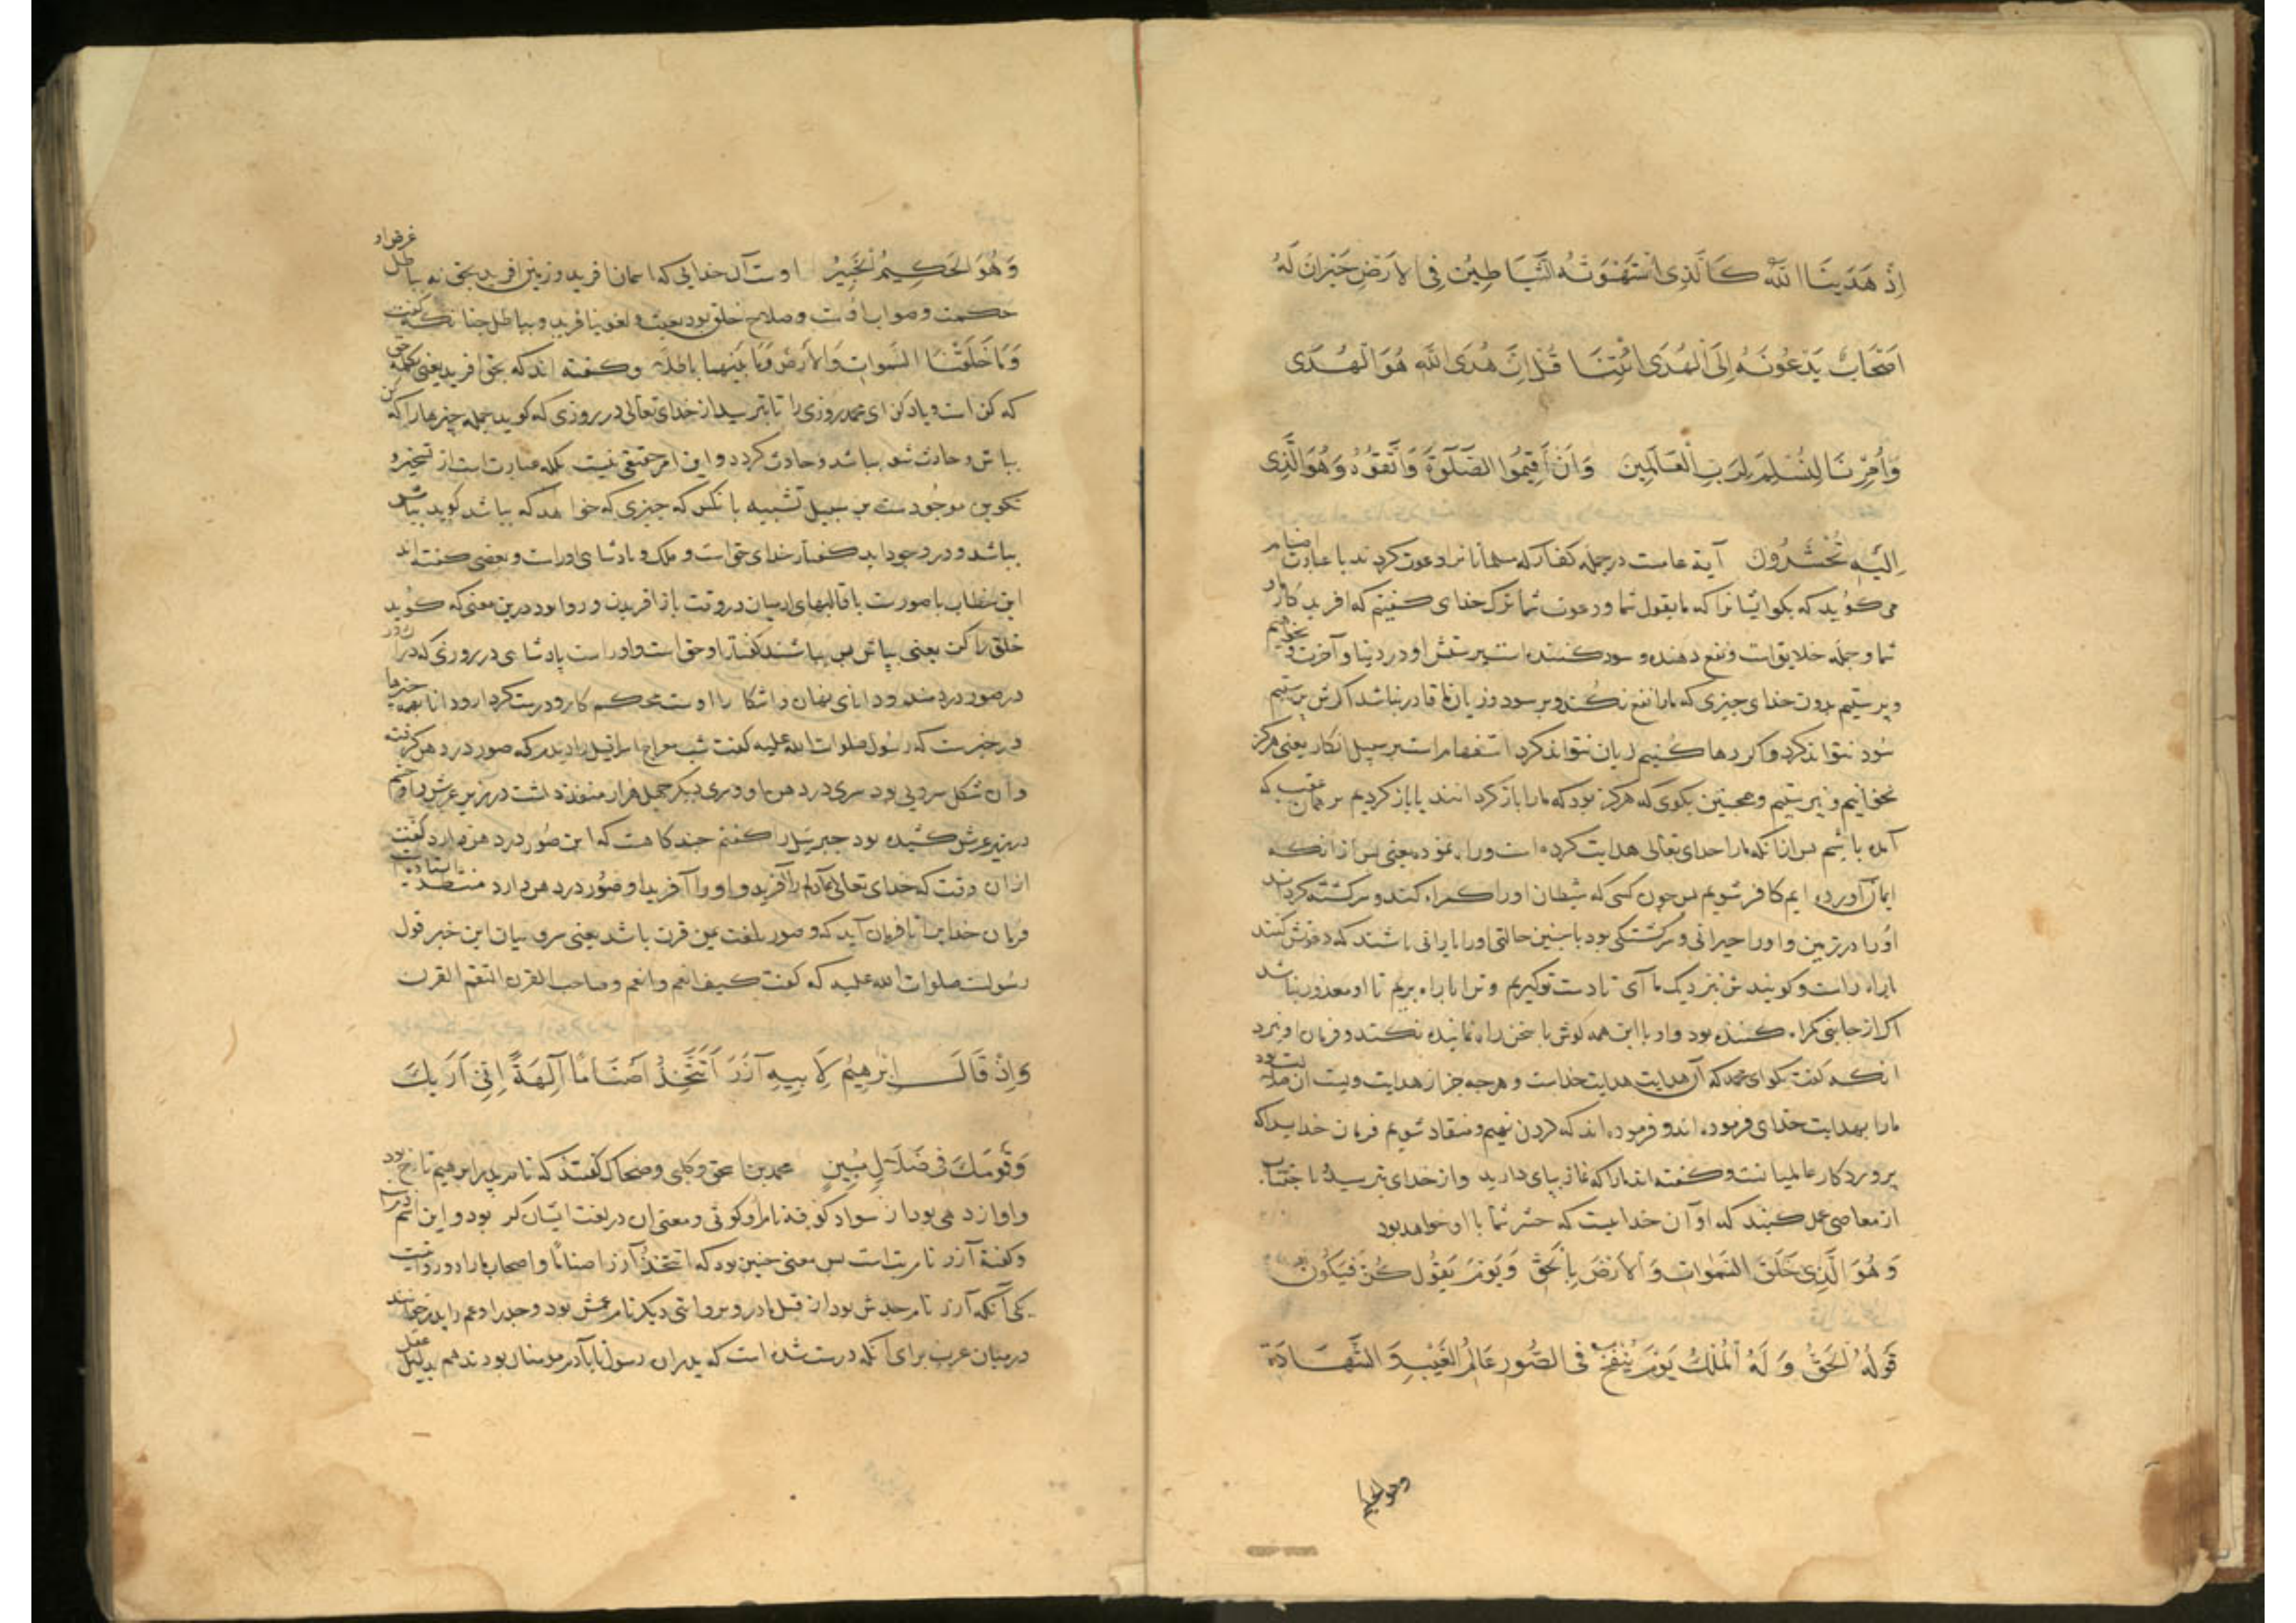 اِذْ هَدَینَا اللّه کَالَّذِی اسْتَهْوَتْهُ الشَّیَاطِیْنُ فِی الاَرْضِ حَیْرَانَ لَهُ
اَصْحَابٌ یَدْعُونَهُ اِلَی الْهُدَی ائْتِنَا قُلْ اِنَّ هُدَی اللّه هُوَ الْهُدَی
وَاُمِرْنَا لِنُسْلِمَ لِرَبِّ الْعَالَمِینَ وَاَنْ اَقِیمُوا الصَّلَوةَ وَاتَّقُوهُ وَهُوَ الَّذِی
اِلَیْهِ تُحْشَرُونَ آیة عامست در جمله کفار که مسلمانانرا دعوت کردند با عبادت اصنام
می کوید که بکو ایشانرا که ما بقول شما و دعوت شما ترک خدای کنیم که افریدکار ما و
شما و جمله خلایق است و نفع دهنده و سود کننده است پرستش او در دنیا و آخرت و نخواهیم
و پرستیم بدون خدای چیزی که ما را نفع نکند و بر سود و زیان ما قادر نباشد اکرش پرستیم
سود نتواند کرد و اکر رها کنیم زیان نتواند کرد استفهام است بر سبیل انکار یعنی هرکز
نخوانیم و نپرستیم و همچنین بکوی که هرکز بود که ما را باز کردانند یا باز کردیم بر همان عقب که
آمده باشیم پس ازانکه ما را خدای تعالی هدایت کرده است و راه نموده یعنی پس ازانکه
ایمان آورده ایم کافر شویم پس چون کسی که شیطان او را کمراه کند و سرکشته کرداند
او را در زمین و او را حیرانی و سرکشتکی بود با چنین حالتی او را یارانی باشند که دعوتش کنند
با راه راست و کویندش نزدیک ما آی تا دست تو کیریم و ترا با راه بریم تا او معذور نباشد
اکر از جانبی کمراه کننده بود و او با این همه کوش با سخن راه نماینده نکند و فرمان او نبرد
انکه کفت بکو ای محمد که آن هدایت هدایت خداست و هرچه جز از هدایت ویست ان ضلالت بود
ما را بهدایت خدای فرموده اند و فرموده اند که کردن نهیم و منقاد شویم فرمان خدایرا که
پروردکار عالمیانست و کفته اند ما را که نماز بپای دارید و از خدای بترسید با جتناب
از معاصی عمل کنید که او آن خدایست که حشر شما با او خواهد بود
وَهُوَ الَّذِی خَلَقَ السَّمَوَاتِ وَالاَرْضَ بِالْحَقِّ وَیَوْمَ یَقُولُ کُنْ فَیَکُونُ
قَوْلُهُ الْحَقُّ وَلَهُ الْمُلْکُ یَوْمَ یُنْفَخُ فِی الصُّورِ عَالِمُ الْغَیْبِ وَ الشَّهَادَةِ
وهو الحکیم
وَهُوَ الْحَکِیمُ الْخَبِیْرُ اوست آن خدایی که اسمان افرید و زمین افرید بحق نه باطل غرض او
حکمت و صواب اوست و صلاح خلق بود بعبث و لغو نیافرید و بباطل چنانکه کفت
وَمَا خَلَقْنَا السَّمَوَاتِ وَالاَرْضَ وَمَا بَیْنَهُمَا بَاطِلًا و کفته اند که بحق افرید یعنی بکلمه حق
که کن است و یاد کن ای محمد روزی را تا بترسید از خدای تعالی در روزی که کوید جمله چیزها را که کن
بباش و حادث شو بباشد و حادث کردد و این امر حقیقی نیست بلکه عبارت است از تسخیر و
تکوین موجودست بر سبیل تشبیه بانکس که چیزی که خواهد که بباشد کوید بباش
بباشد و در وجود اید کفتار خدای حق است و ملک و پادشای اوراست و بعضی کفته اند
این خطاب با صورت با قالبهای ادمیان در وقت باز افریدن و روا بود درین معنی که کوید
خلق را کن یعنی بباش پس بباشند کفتار او حق است و اوراست پادشای در روزی که در
در صور دردمند و دانای نهان و اشکارا اوست محکم کار و درست کردار و دانا بهمه چیزها
در خبرست که رسول صلوات الله علیه کفت شب معراج اسرافیل را دیدم که صور در دهن کرفته
و آن شکل سرویی بود سری در دهن او و سری دیکر چهل هزار منفذ داشت در زیر عرش
در زیر عرش کشیده بود جبرئیل را کفتم چند کاهست که این صور در دهن دارد کفت
ازان وقت که خدای تعالی آدم را آفرید و او را آفرید او صور در دهن دارد منتظر ایستاده است
فرمان خدایرا تا فرمان آید که و صور بلغت یمن قرن باشد یعنی سرو بیان این خبر قول
رسولست صلوات الله علیه که کفت کیف انعم وانعم وصاحب القرن التقم القرن
وَاِذْ قَالَ اِبْرَهِیْمُ لِاَبِیهِ آزَرَ اَتَتَّخِذُ اَصْنَامًا آلِهَةً اِنِّی اَرَیکَ
وَقَوْمَکَ فِی ضَلَالٍ مُبِینٍ محمد بن اسحق و کلبی و ضحاک کفتند که نام پدر ابرهیم تارخ بود
و او از دهی بود از سواد کوفه نام او کوثی و معنی ان در لغت ایشان کژ بود و این اسم
و کفته آزر نام بت است پس معنی چنین بود که اتتخذ آزر اصناما و اصحاب ما را دو روایت
یکی آنکه آزر نام جدش بود از قبل مادر و بروایتی دیکر نام عمش بود و جد را و عم را پدر خوانند
در میان عرب برای آنکه درست شده است که پدران رسول ما تا آدم مومنان بودند هم بدلیل عقل